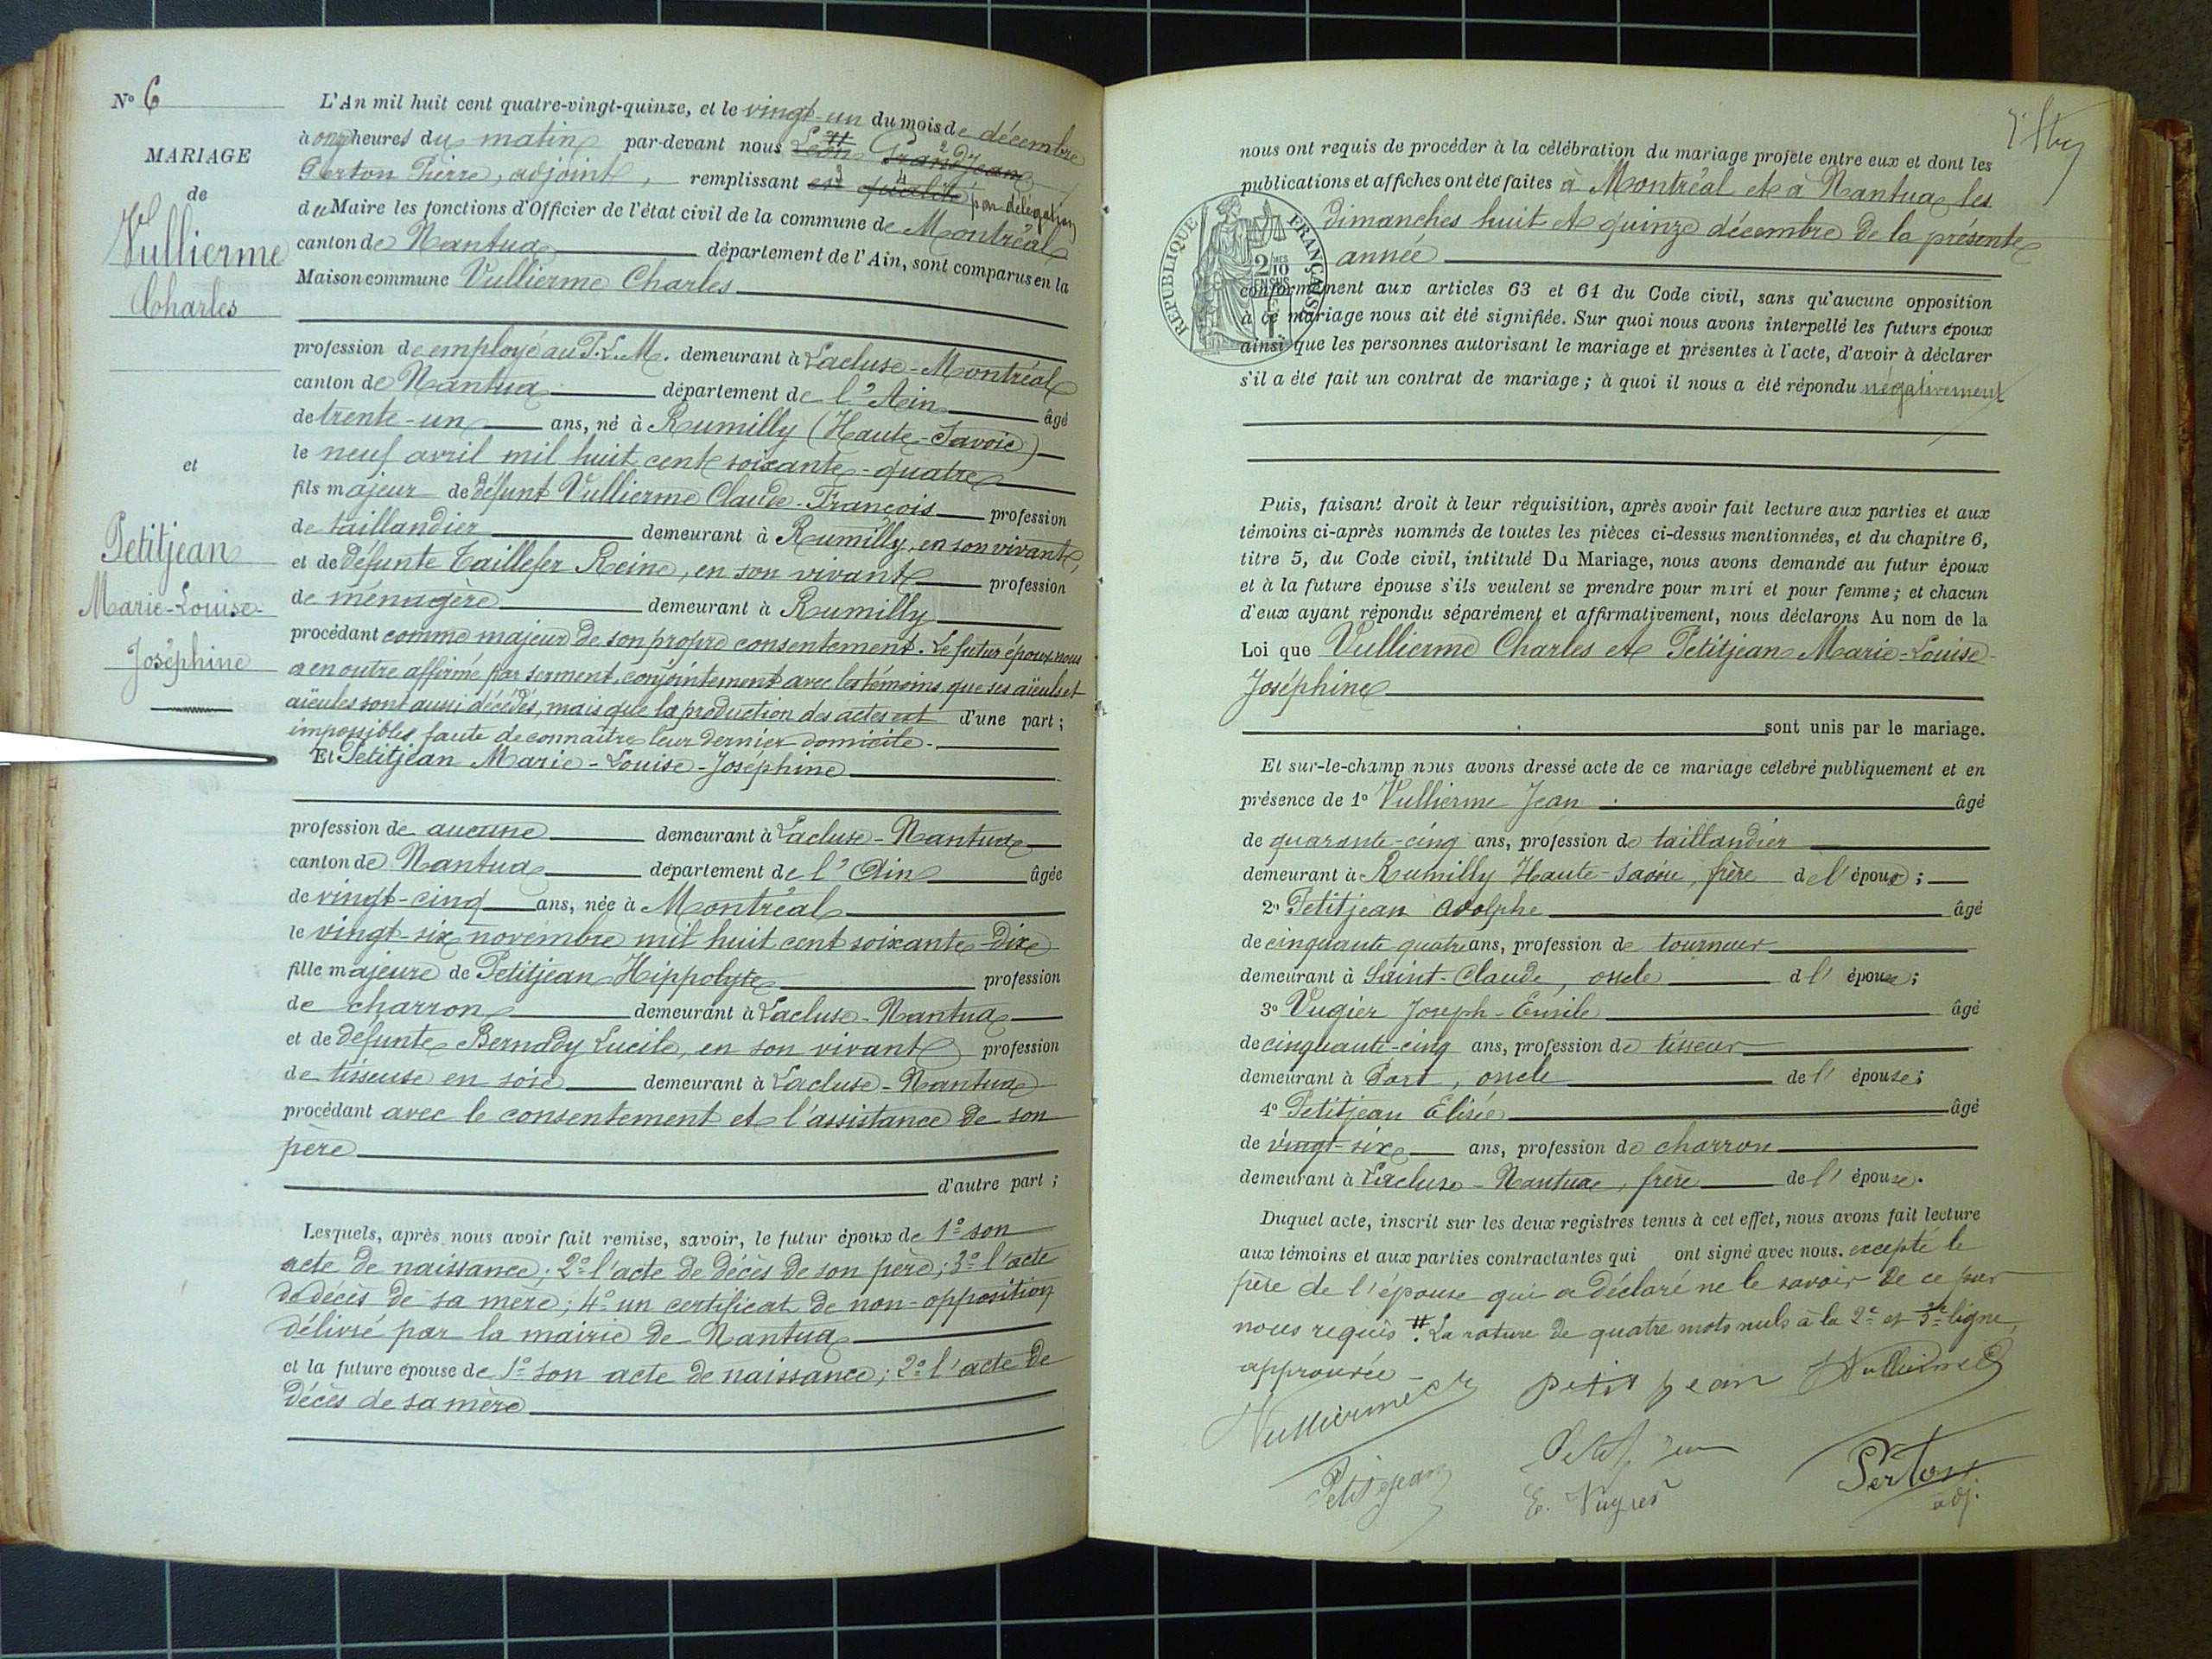 N° 6
MARIAGE
de
Vullierme
Charles
et
Petitjean
Marie-Louise-
Joséphine
L'An mil huit cent quatre-vingt-quinze, et le vingt-un du mois de décembre
à onze heures du matin par-devant nous Léon Grandjean
Perton Pierre, adjoint, remplissant es qualité par délégation
du Maire les fonctions d'Officier de l'état civil de la commune de Montréal
canton de Nantua département de l'Ain, sont comparus en la
Maison commune Vullierme Charles
profession de employé au P.L.M. demeurant à Lacluse-Montréal
canton de Nantua département de l'Ain âgé
de trente-un ans, né à Rumilly (Haute-Savoie)
le neuf avril mil huit cent soixante-quatre
fils majeur de défunt Vullierme Claude-François profession
de taillandier demeurant à Rumilly, en son vivant,
et de défunte Taillefer Reine, en son vivant profession
de ménagère demeurant à Rumilly
procédant comme majeur de son propre consentement. Le futur époux nous
a en outre affirmé par serment, conjointement avec les témoins, que ses aïeuls et
aïeules sont aussi décédés, mais que la production des actes est d'une part;
impossible, faute de connaître leur dernier domicile.
Et Petitjean Marie-Louise-Joséphine
profession de aucune demeurant à Lacluse-Nantua
canton de Nantua département de l'Ain âgée
de vingt-cinq ans, née à Montréal
le vingt-six novembre mil huit cent soixante-dix
fille majeure de Petitjean Hippolyte profession
de charron demeurant à Lacluse-Nantua
et de défunte Bernady Lucile, en son vivant profession
de tisseuse en soie demeurant à Lacluse-Nantua
procédant avec le consentement et l'assistance de son
père
d'autre part;
Lesquels, après nous avoir fait remise, savoir, le futur époux de 1° son
acte de naissance; 2° l'acte de décès de son père; 3° l'acte
de décès de sa mère; 4° un certificat de non-opposition
délivré par la mairie de Nantua
et la future épouse de 1° son acte de naissance; 2° l'acte de
décès de sa mère
nous ont requis de procéder à la célébration du mariage projeté entre eux et dont les
publications et affiches ont été faites à Montréal et à Nantua les
dimanches huit et quinze décembre de la présente
année
REPUBLIQUE FRANÇAISE
2/10 EN SUS
conformément aux articles 63 et 64 du Code civil, sans qu'aucune opposition
à ce mariage nous ait été signifiée. Sur quoi nous avons interpellé les futurs époux
ainsi que les personnes autorisant le mariage et présentes à l'acte, d'avoir à déclarer
s'il a été fait un contrat de mariage; à quoi il nous a été répondu négativement
Puis, faisant droit à leur réquisition, après avoir fait lecture aux parties et aux
témoins ci-après nommés de toutes les pièces ci-dessus mentionnées, et du chapitre 6,
titre 5, du Code civil, intitulé Du Mariage, nous avons demandé au futur époux
et à la future épouse s'ils veulent se prendre pour mari et pour femme; et chacun
d'eux ayant répondu séparément et affirmativement, nous déclarons Au nom de la
Loi que Vullierme Charles et Petitjean Marie-Louise-
Joséphine
sont unis par le mariage.
Et sur-le-champ nous avons dressé acte de ce mariage célébré publiquement et en
présence de 1° Vullierme Jean âgé
de quarante-cinq ans, profession de taillandier
demeurant à Rumilly Haute-Savoie, frère de l'époux;
2° Petitjean Adolphe âgé
de cinquante quatre ans, profession de tourneur
demeurant à Saint-Claude, oncle d l' épouse;
3° Vugier Joseph-Emile âgé
de cinquante-cinq ans, profession de tisseur
demeurant à Port, oncle de l' épouse;
4° Petitjean Elisée âgé
de vingt-six ans, profession de charron
demeurant à Lacluse-Nantua, frère de l' épouse.
Duquel acte, inscrit sur les deux registres tenus à cet effet, nous avons fait lecture
aux témoins et aux parties contractantes qui ont signé avec nous. excepté le
père de l'épouse qui a déclaré ne le savoir de ce par
nous requis # La rature de quatre mots nuls à la 2e et 3e ligne,
approuvée -
Vullierme Ch petit jean J Vullierme
Petitjean
Petitjean E. Vugier Perton
adj.